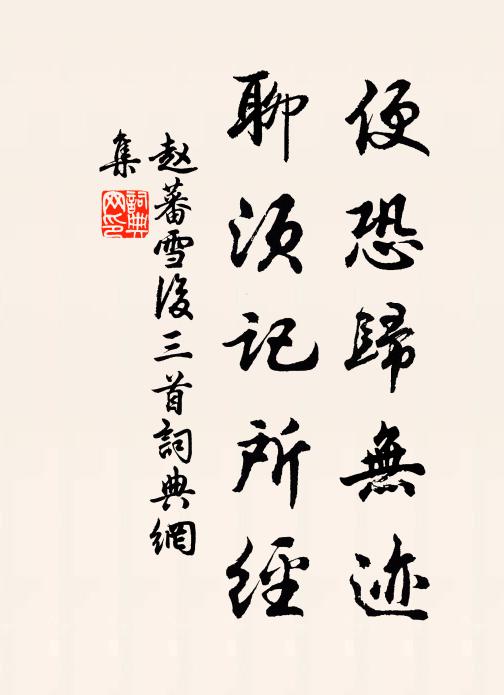 便恐歸無迹
聊須記所經
赵蕃雪後三首詞典網
集
詞典网印